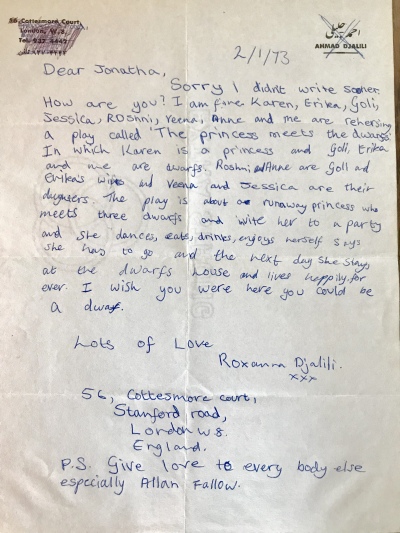 56 Cottesmore Court,
London, W.8.
Tel. 937
AHMAD DJALILI
2/1/73
Dear Jonatha,
Sorry I didnt write sooner.
How are you? I am fine. Karen, Erika, Goli,
Jessica, Roshni, Veena, Anne and me are rehersing
a play called 'The princess meets the dwarfs'
In which Karen is a princess and Goli, Erika
and me are dwarfs. Roshni ad Anne are Goli ad
Erika's wifes ad Veena and Jessica are their
daugters. The play is about a runaway princess who
meets three dwarfs and wite her to a party
and she dances, eats, drinks, enjoys herself says
she has to go and the next day she stays
at the dwarfs house and lives happily for
ever. I wish you were here you could be
a dwarf.
Lots of Love
Roxanna Djalili.
xxx
56, Cottesmore court,
Stanford road,
London W8.
England.
P.S. Give love to every body else
especially Allan Fallow.